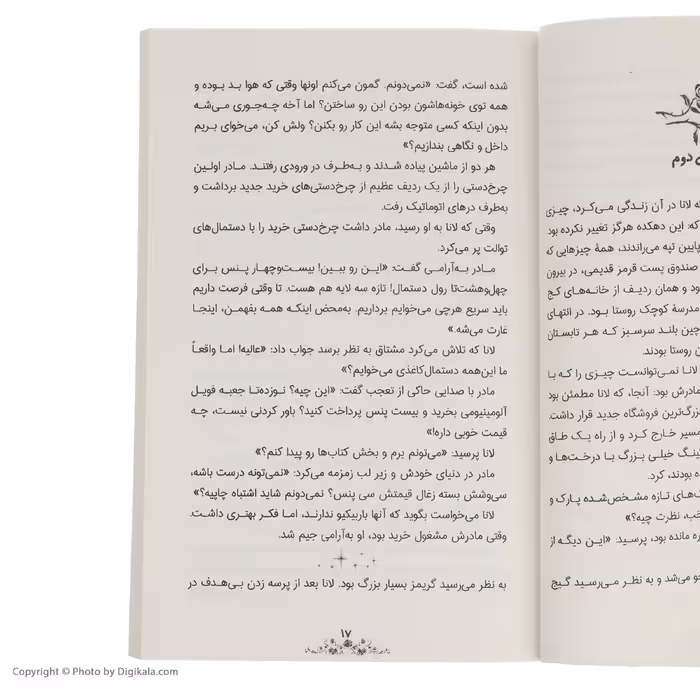 ی دوم
که لانا در آن زندگی می‌کرد، چیزی
که: این دهکده هرگز تغییر نکرده بود
پایین تپه می‌راندند، همهٔ چیزهایی که
صندوق پست قرمز قدیمی، در بیرون
ود و همان ردیف از خانه‌های کج
مدرسهٔ کوچک روستا بود. در انتهای
چین بلند سرسبز که هر تابستان
ن روستا بودند.
لانا نمی‌توانست چیزی را که با
مادرش بود: آنجا، که لانا مطمئن بود
بزرگ‌ترین فروشگاه جدید قرار داشت.
مسیر خارج کرد و از راه یک طاق
کینگ خیلی بزرگ با درخت‌ها و
ه بودند، کرد.
ک‌های تازه مشخص‌شده پارک و
خب، نظرت چیه؟»
ره مانده بود، پرسید: «این دیگه از
جو می‌شد و به نظر می‌رسید گیج
شده است، گفت: «نمی‌دونم. گمون می‌کنم اونها وقتی که هوا بد بوده و
همه توی خونه‌هاشون بودن این رو ساختن؟ اما آخه چه‌جوری می‌شه
بدون اینکه کسی متوجه بشه این کار رو بکنن؟ ولش کن، می‌خوای بریم
داخل و نگاهی بندازیم؟»
هر دو از ماشین پیاده شدند و به‌طرف در ورودی رفتند. مادر اولین
چرخ‌دستی را از یک ردیف عظیم از چرخ‌دستی‌های خرید جدید برداشت و
به‌طرف درهای اتوماتیک رفت.
وقتی که لانا به او رسید، مادر داشت چرخ‌دستی خرید را با دستمال‌های
توالت پر می‌کرد.
مادر به‌آرامی گفت: «این رو ببین! بیست‌وچهار پنس برای
چهل‌وهشت‌تا رول دستمال! تازه سه لایه هم هست. تا وقتی فرصت داریم
باید سریع هرچی می‌خوایم برداریم. به‌محض اینکه همه بفهمن، اینجا
غارت می‌شه.»
لانا که تلاش می‌کرد مشتاق به نظر برسد جواب داد: «عالیه! اما واقعاً
ما این‌همه دستمال‌کاغذی می‌خوایم؟»
مادر با صدایی حاکی از تعجب گفت: «این چیه؟ نوزده‌تا جعبه فویل
آلومینیومی بخرید و بیست پنس پرداخت کنید؟ باور کردنی نیست، چه
قیمت خوبی داره!»
لانا پرسید: «می‌تونم برم و بخش کتاب‌ها رو پیدا کنم؟»
مادر در دنیای خودش و زیر لب زمزمه می‌کرد: «نمی‌تونه درست باشه،
سی‌وشش بسته زغال قیمتش سی پنس؟ نمی‌دونم شاید اشتباه چاپیه؟»
لانا می‌خواست بگوید که آنها باربیکیو ندارند، اما فکر بهتری داشت.
وقتی مادرش مشغول خرید بود، او به‌آرامی جیم شد.
به نظر می‌رسید گریمز بسیار بزرگ بود. لانا بعد از پرسه زدن بی‌هدف در
۱۷
Copyright © Photo by Digikala.com